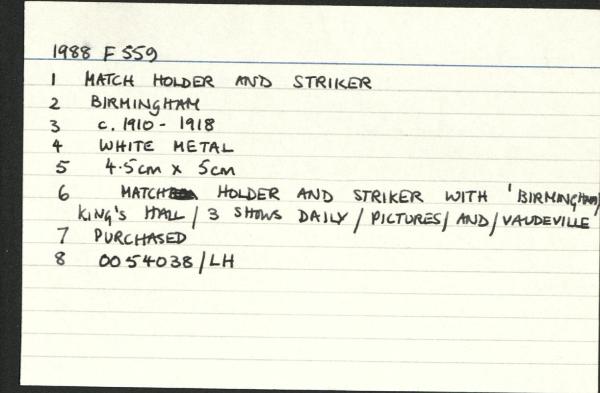 1988 F 559
1 MATCH HOLDER AND STRIKER
2 BIRMINGHAM
3 c. 1910 - 1918
4 WHITE METAL
5 4.5cm x 5cm
6 MATCH HOLDER AND STRIKER WITH 'BIRMINGHAM/
KING'S HALL / 3 SHOWS DAILY / PICTURES / AND / VAUDEVILLE
7 PURCHASED
8 0054038/LH